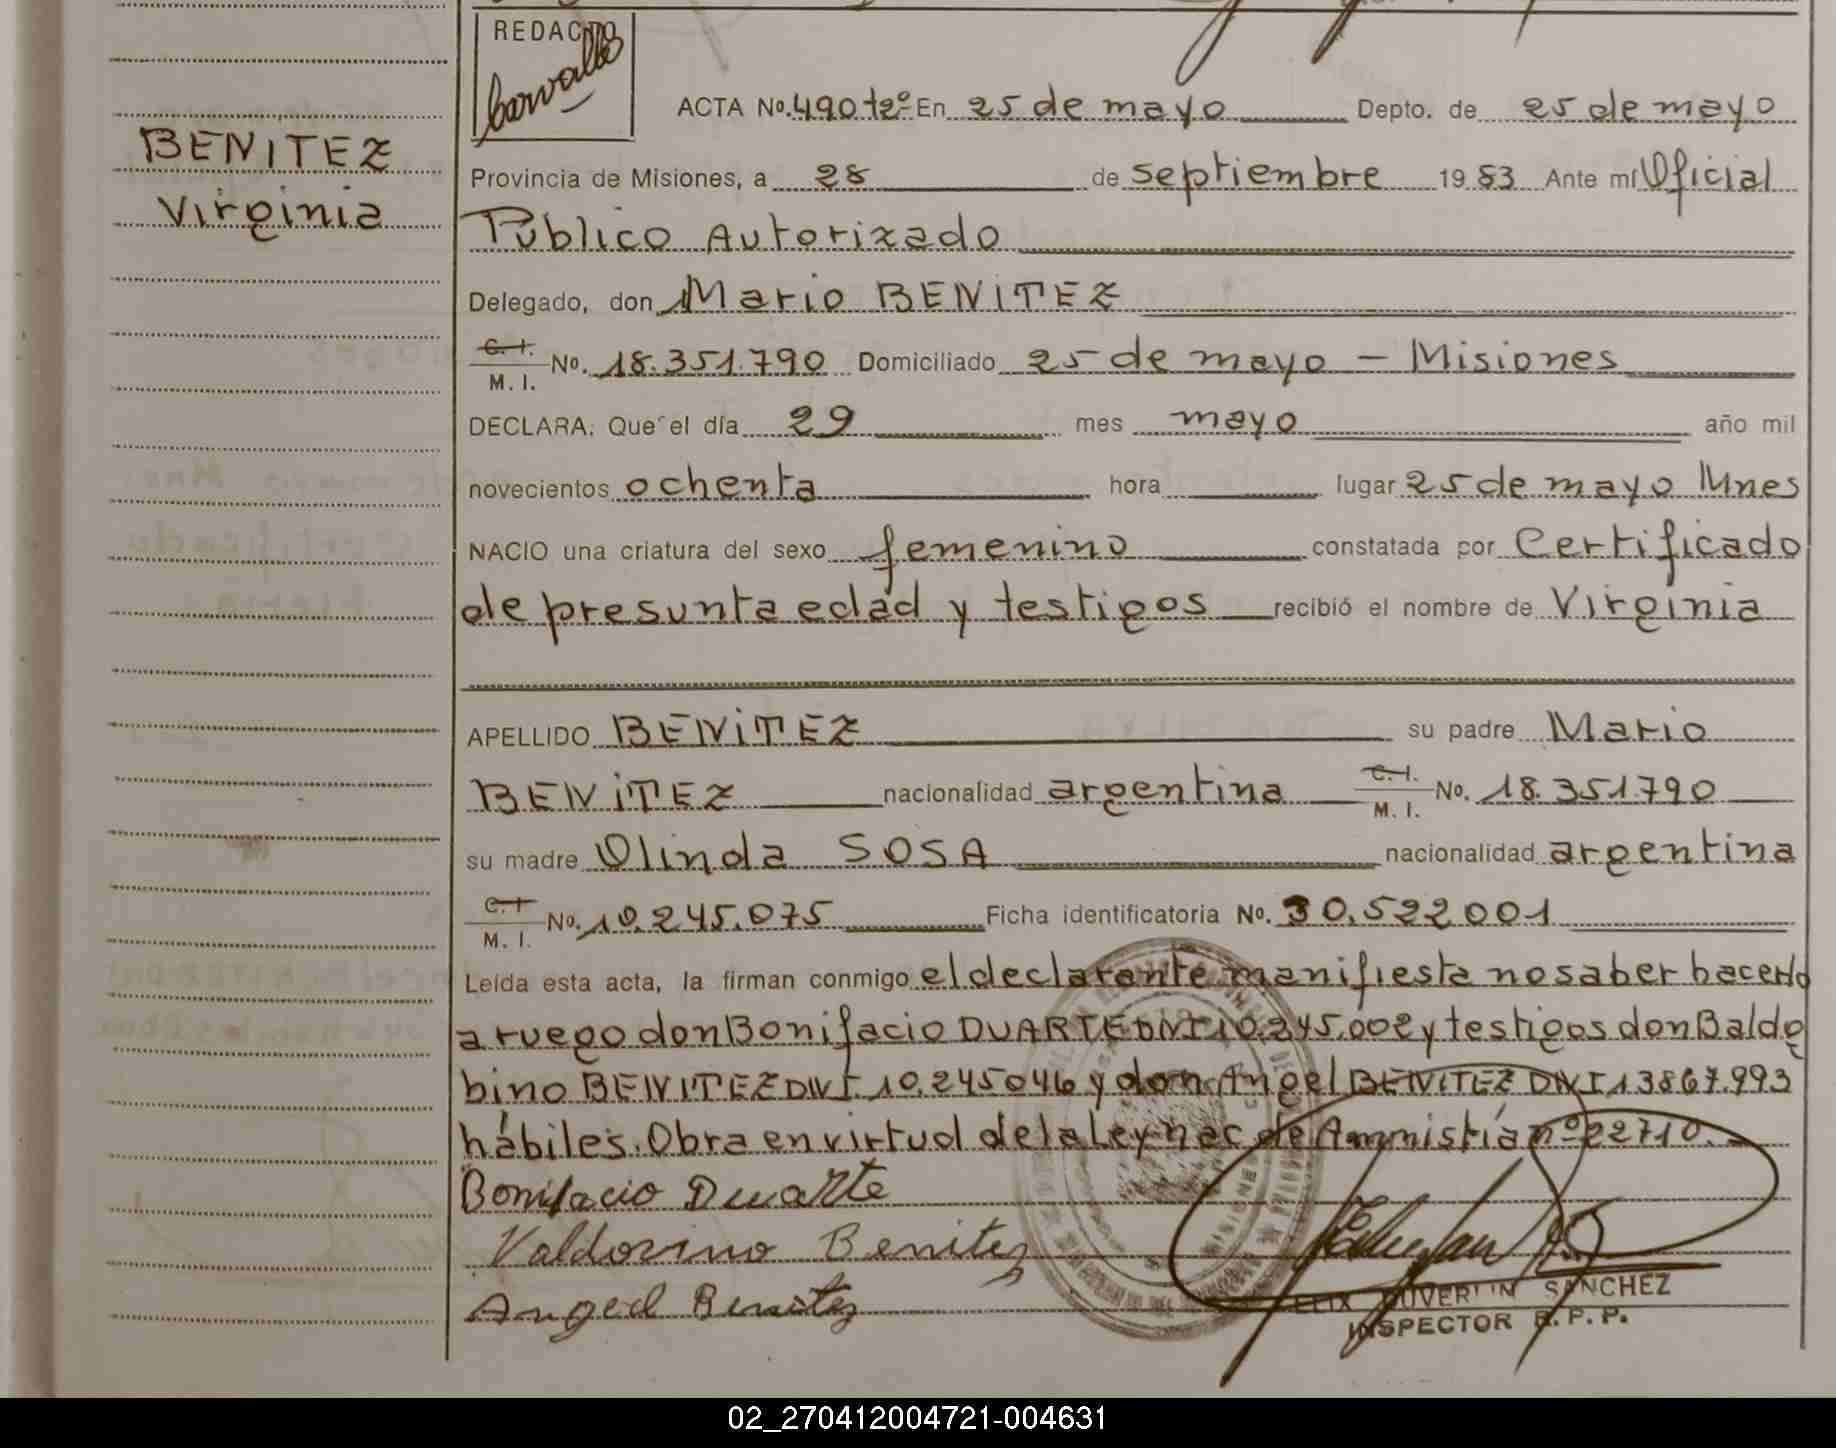 REDACTO
Carvallo
ACTA No. 490 t2º En 25 de mayo Depto. de 25 de mayo
BENITEZ
Virginia
Provincia de Misiones, a 28 de septiembre 1983 Ante mí Oficial
Público Autorizado
Delegado, don Mario BENITEZ
C. I. / M. I. No. 18.351.790 Domiciliado 25 de mayo – Misiones
DECLARA: Que el día 29 mes mayo año mil
novecientos ochenta hora lugar 25 de mayo Mnes
NACIO una criatura del sexo femenino constatada por Certificado
de presunta edad y testigos recibió el nombre de Virginia
APELLIDO BENITEZ su padre Mario
BENITEZ nacionalidad argentina C. I. / M. I. No. 18.351.790
su madre Olinda SOSA nacionalidad argentina
C. I. / M. I. No. 10.245.075 Ficha identificatoria No. 30.522001
Leída esta acta, la firman conmigo el declarante manifiesta no saber hacerlo
a ruego don Bonifacio DUARTE DNI 10.245.002 y testigos don Baldo
bino BENITEZ DNI. 10.245046 y don Angel BENITEZ DNI 13867.993
hábiles. Obra en virtud de la Ley nac de Ammistía nº 22710.
Bonifacio Duarte
Valdovino Benitez
Angel Benitez
FELIX SANCHEZ
INSPECTOR R. P. P.
02_270412004721-004631